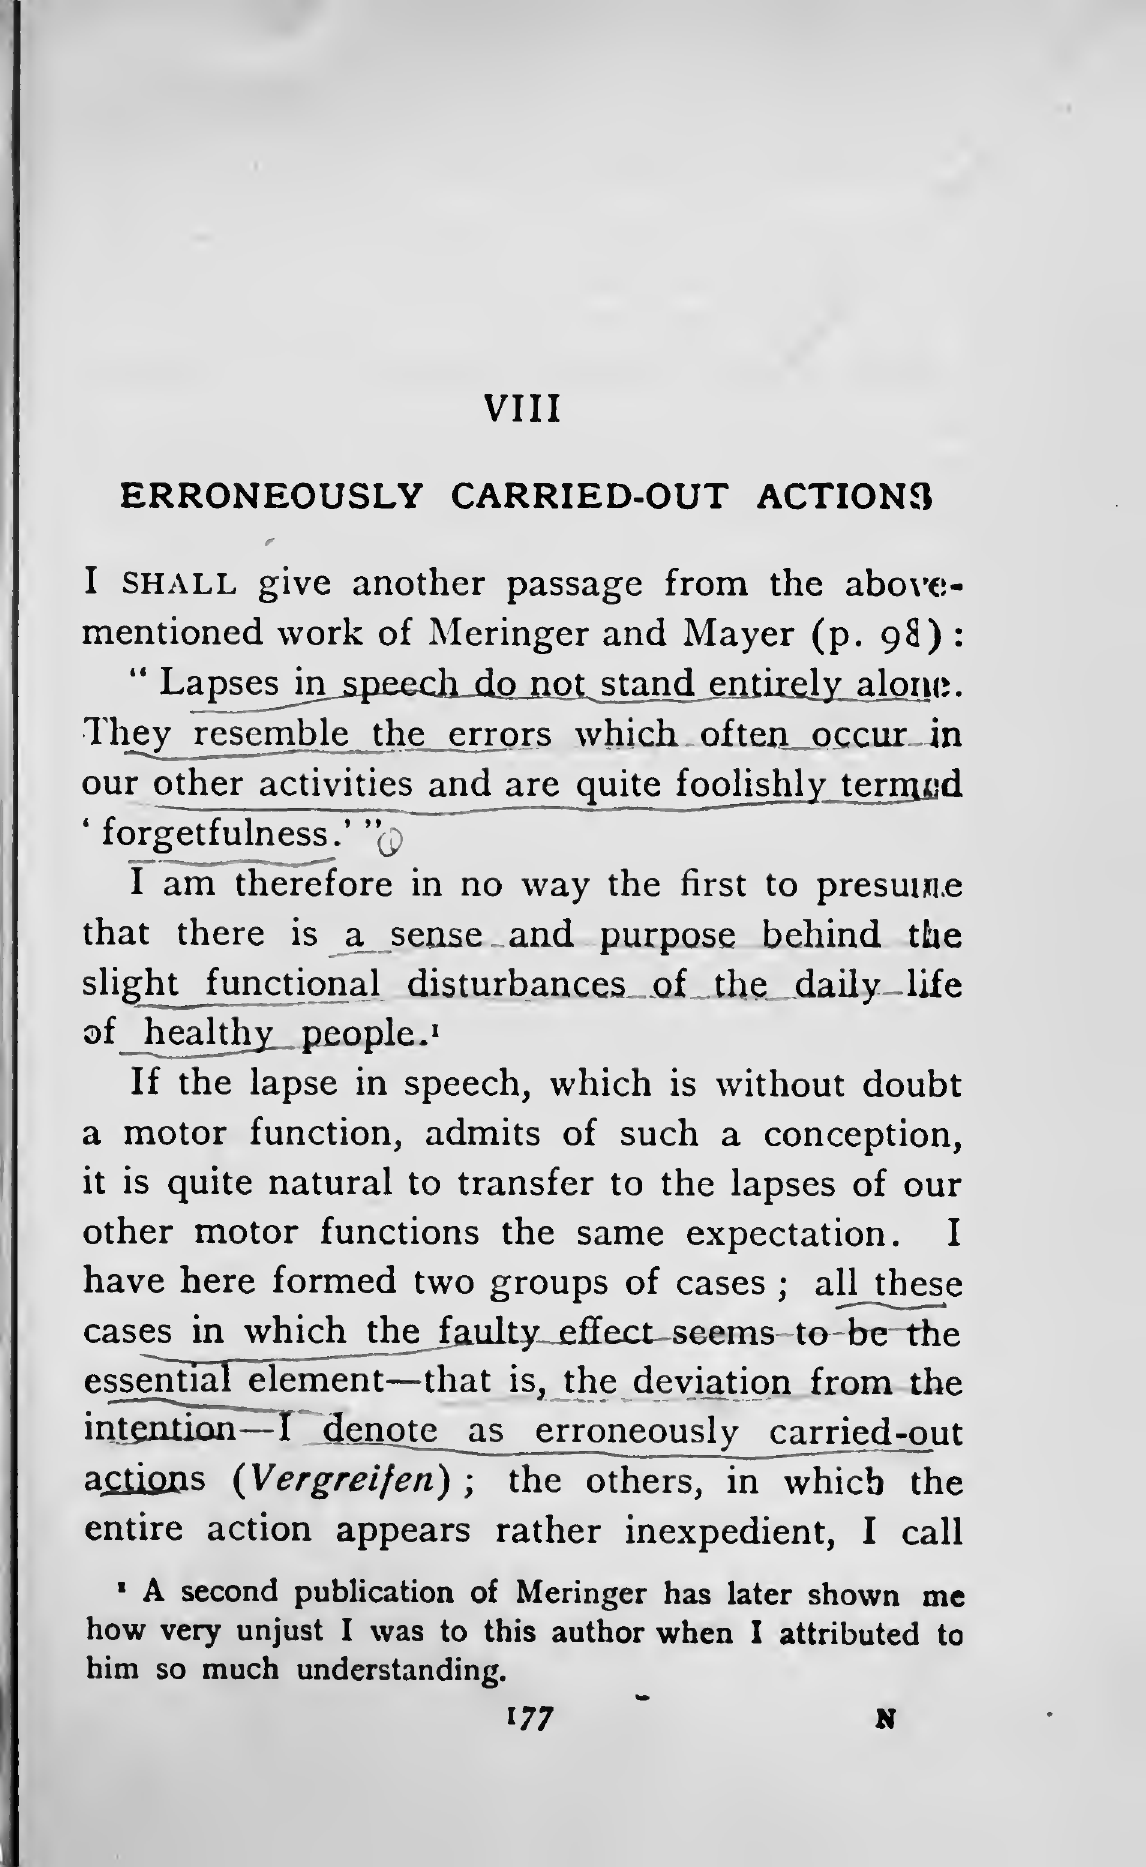 VIII
ERRONEOUSLY CARRIED-OUT ACTIONS
I SHALL give another passage from the above-
mentioned work of Meringer and Mayer (p. 98) :
“ Lapses in speech do not stand entirely alone.
They resemble the errors which often occur in
our other activities and are quite foolishly termed
‘ forgetfulness.’ ”
I am therefore in no way the first to presume
that there is a sense and purpose behind the
slight functional disturbances of the daily life
of healthy people.¹
If the lapse in speech, which is without doubt
a motor function, admits of such a conception,
it is quite natural to transfer to the lapses of our
other motor functions the same expectation. I
have here formed two groups of cases ; all these
cases in which the faulty effect seems to be the
essential element—that is, the deviation from the
intention—I denote as erroneously carried-out
actions (Vergreifen) ; the others, in which the
entire action appears rather inexpedient, I call
¹ A second publication of Meringer has later shown me
how very unjust I was to this author when I attributed to
him so much understanding.
177 N